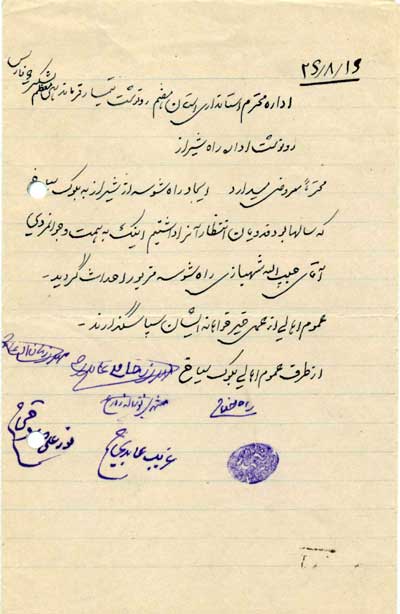 ۲۹/۸/۱۶
اداره محترم استانداری استان هفتم رونوشت تیمسار فرماندهی معظم لشکر ۶ فارس
رونوشت اداره راه شیراز
محترماً معروض میدارد ایجاد راه شوسه از شیراز به بلوک سیاخ
که سالها بود قدویان انتظار آنرا داشتیم اینک به همت و جوانمردی
آقای حبیب اله شهبازی راه شوسه مزبور احداث گردید -
عموم اهالی از عمل خیرخواهانه ایشان سپاسگذارند -
از طرف عموم اهالی بلوک سیاخ
غریب عابدی
نورعلی